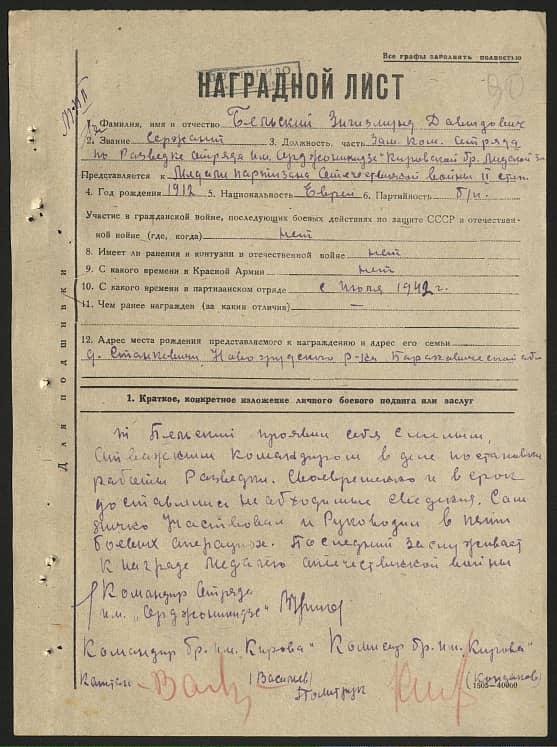 Все графы заполнять полностью
НАГРАДНОЙ ЛИСТ
1. Фамилия, имя и отчество Бельский Зигизмунд Давидович
2. Звание Сержант 3. Должность, часть Зам. Ком. Отряда
по Разведке отряда им. Орджоникидзе-Кировской бр. Лидской
Представляется к Медали партизана Отечественной войны II степ.
4. Год рождения 1912 5. Национальность Еврей 6. Партийность б/п.
Участие в гражданской войне, последующих боевых действиях по защите СССР и отечествен-
ной войне (где, когда) нет
8. Имеет ли ранения и контузии в отечественной войне нет
9. С какого времени в Красной Армии нет
10. С какого времени в партизанском отряде с Июля 1942 г.
11. Чем ранее награжден (за какие отличия) —
12. Адрес места рождения представляемого к награждению и адрес его семьи
д. Станкевичи Новогрудского р-на Барановической обл.
Для подшивки
1. Краткое, конкретное изложение личного боевого подвига или заслуг
т. Бельский проявил себя смелым,
отважным командиром в деле постановки
работы Разведки. Своевременно и в срок
доставлялись необходимые сведения. Сам
лично участвовал и Руководил в пяти
боевых операциях. Последний заслуживает
к награде Медалью отечественной войны
Командир Отряда
им. „Орджоникидзе"
Командир бр. им. „Кирова" Комисар бр. им. „Кирова"
Капитан (Васильев) Политрук (Кондаков)
1505—40000